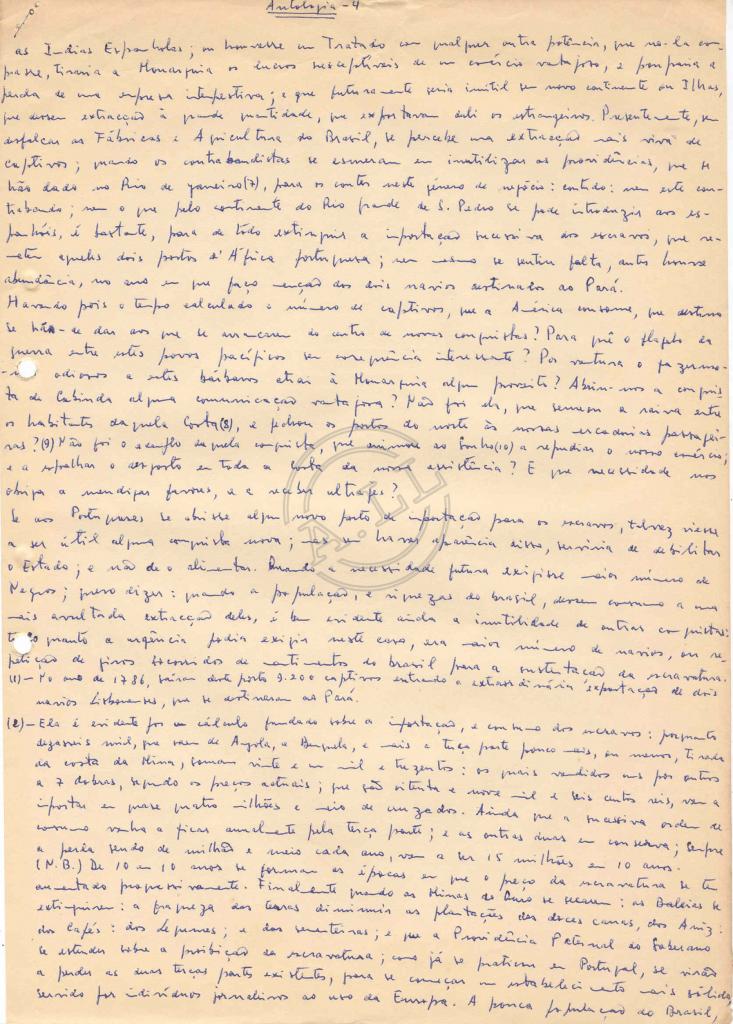 Antologia - 4
as Indias Espanholas; ou houvesse um Tratado com qualquer outra potência, que no-la com-
prasse, tiraria a Monarquia os lucros susceptiveis de um comércio vantajoso, e pouparia a
perda de uma empresa intempestiva; e que futuramente seria inutil sem novo continente ou Ilhas,
que dessem extracção à grande quantidade, que exportavam dali os estrangeiros. Presentemente, sem
desfalcar as Fábricas e Agricultura do Brasil, se percebe uma extracção mais viva de
captivos; quando os contrabandistas se esmeram em inutilizar as providências, que se
hão dado no Rio de Janeiro(7), para os conter neste género de negócio: contudo: nem este con-
trabando; nem o que pelo continente do Rio grande de S. Pedro se pode introduzir aos es-
panhóis, é bastante, para de todo extinguir a importação sucessiva dos escravos, que re-
metem aqueles dois portos d'África portuguesa; nem mesmo se sentiu falta, antes houve
abundância, no ano em que faço menção dos dois navios destinados ao Pará.
Havendo pois o tempo calculado o número de captivos, que a América consome, que destino
se hão-de dar aos que se arrancarem do centro de novas conquistas? Para quê o flagelo da
guerra entre estes povos pacíficos sem consequência interessante? Por ventura o fazermo-
-nos odiosos a estes bárbaros atrai à Monarquia algum proveito? Abriu-nos a conquis-
ta de Cabinda alguma comunicação vantajosa? Não foi ela, que semeou a raiva entre
os habitantes daquela Costa(8), e fechou os portos do norte às nossas escadorias passagei-
ras?(9) Não foi o exemplo daquela conquista, que animou ao Sonho(10) a repudiar o nosso comércio;
e a espalhar o desgosto em toda a Costa da nossa assistência? E que necessidade nos
obriga a mendigar favores, e a receber ultrajes?
Se aos Portugueses se abrisse algum novo porto de importação para os escravos, talvez viesse
a ser útil alguma conquista nova; mas sem haver aparência disso, serviria de debilitar
o Estado; e não de o alimentar. Quando a necessidade futura exigisse maior número de
Negros; quero dizer: quando a população, e riquezas do brasil, dessem consumo a uma
mais avultada extracção deles, é bem evidente ainda a inutilidade de outras conquistas:
tudo quanto a urgência podia exigir neste caso, era maior número de navios, ou re-
petição de giros socorridos de mantimentos do brasil para a sustentação da escravatura.
(1) - No ano de 1786, sairam deste porto 9.200 captivos entrando a extraordinária exportação de dois
navios Lisbonenses, que se destinaram ao Pará.
(2) - Ela é evidente por um cálculo fundado sobre a importação, e consumo dos escravos: porquanto
dezasseis mil, que saem de Angola, e Benguela, e mais a terça parte pouco mais, ou menos, tirada
da costa da Mina, somam vinte e um mil e trezentos: os quais vendidos uns por outros
a 7 dobras, segundo os preços actuais; que são oitenta e nove mil e seis centos reis, vem a
importar em quase quatro milhões e meio de cruzados. Ainda que a sucessiva ordem de
consumo venha a ficar anualmente pela terça parte; e as outras duas em conserva; sempre
a perda sendo de milhão e meio cada ano, vem a ser 15 milhões em 10 anos.
(N.B.) De 10 en 10 anos se formam as épocas em que o preço da escravatura se tem
aumentado progressivamente. Finalmente quando as Minas do Ouro se secarem: as Baleias se
extinguirem: a fraqueza das terras diminuir as plantações das doces canas, dos Aniz:
dos Cafés: dos Legumes; e das sementeiras; e que a Providência Paternal do Soberano
se estender sobre a proibição da escravatura; como já se praticou em Portugal, se virão
a perder as duas terças partes existentes, para se começar um estabelecimento mais sólido,
servido por indivíduos jornaleiros ao uso da Europa. A pouca população do Brasil,
A.LL